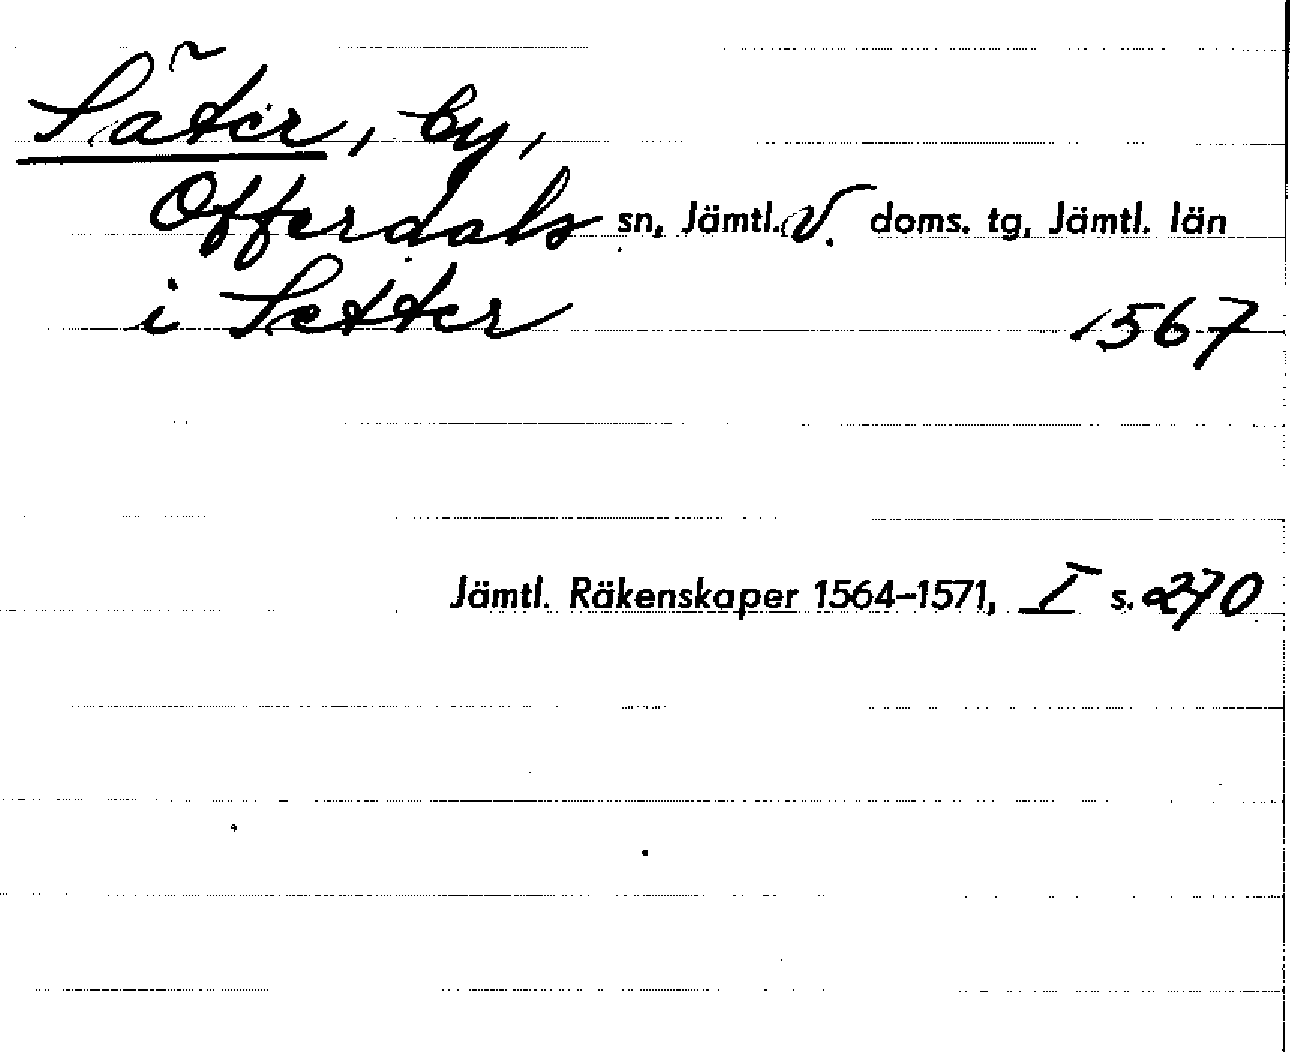 Säter, by,
Offerdals sn, Jämtl. V. doms. tg, Jämtl. län
i Setter 1567
Jämtl. Räkenskaper 1564–1571, I s. 270